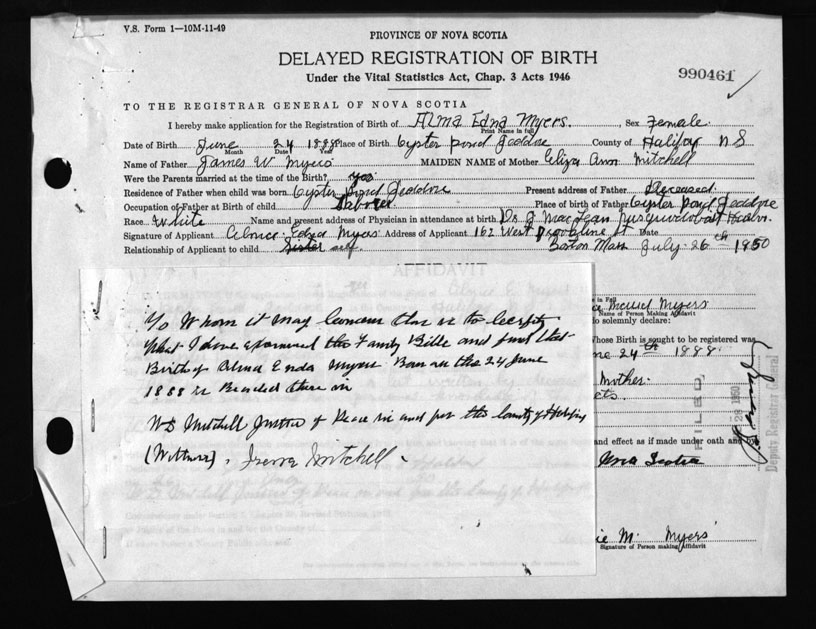 V.S. Form 1—10M-11-49
PROVINCE OF NOVA SCOTIA
DELAYED REGISTRATION OF BIRTH
Under the Vital Statistics Act, Chap. 3 Acts 1946
990461
TO THE REGISTRAR GENERAL OF NOVA SCOTIA
I hereby make application for the Registration of Birth of Alma Edna Myers. Sex Female.
Print Name in full
Date of Birth June 24 1888 Place of Birth Oyster Pond Jeddore County of Halifax N S
Month Date Year
Name of Father James W Myers MAIDEN NAME of Mother Eliza Ann Mitchell
Were the Parents married at the time of the Birth? yes
Residence of Father when child was born Oyster Pond Jeddore Present address of Father Deceased.
Occupation of Father at Birth of child Laborer Place of birth of Father Oyster Pond Jeddore
Race White Name and present address of Physician in attendance at birth Dr J MacLean Musquodoboit
Signature of Applicant Edna Myers Address of Applicant 162 West Brookline St Date
Relationship of Applicant to child Sister self Boston Mass July 26th 1950
AFFIDAVIT
To Whom it May Concern this is to Certify
that I have examined the Family Bible and find that
Birth of Alma Enda Myers Born on the 24 June
1888 is there in
WD Mitchell Justice of Peace in and for the County of Halifax
(Wittness). Mitchell.
in Full
Myers
Name of Person Making Affidavit
do solemnly declare:
Whose Birth is sought to be registered was
ne 24th 1888
Mother.
and effect as if made under oath and
Nova Scotia
ie M. Myers
Signature of Person making Affidavit
FILED
28 1950
Deputy Registrar General